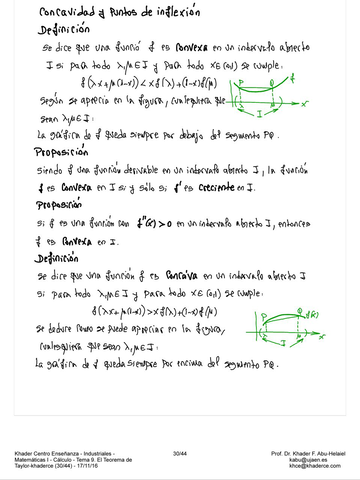 Concavidad y puntos de inflexión
Definición
Se dice que una funció f es Convexa en un intervalo abierto
I si para todo λ,μ∈I y para todo x∈(0,1) se cumple:
f(λx+μ(1-x))<x f(λ)+(1-x)f(μ)
Según se aprecia en la figura, cualesquiera que
sean λ,μ∈I:
La gráfica de f queda siempre por debajo del segmento PQ.
P Q f
λ μ x
I
Proposición
Siendo f una función derivable en un intervalo abierto I, la función
f es Convexa en I si y sólo si f' es Creciente en I.
Proposición
Si f es una función con f''(x)>0 en un intervalo abierto I, entonces
f es Convexa en I.
Definición
Se dice que una función f es Concava en un intervalo abierto I
si para todo λ,μ∈I y para todo x∈(0,1) se cumple:
f(λx+μ(1-x))>x f(λ)+(1-x)f(μ)
Se deduce como se puede apreciar en la figura,
cualesquiera que sean λ,μ∈I:
La gráfica de f queda siempre por encima del segmento PQ.
P Q f(x)
λ μ x
I
Khader Centro Enseñanza - Industriales -
Matemáticas I - Cálculo - Tema 9. El Teorema de
Taylor-khaderce (30/44) - 17/11/16
30/44
Prof. Dr. Khader F. Abu-Helaiel
kabu@ujaen.es
khce@khaderce.com